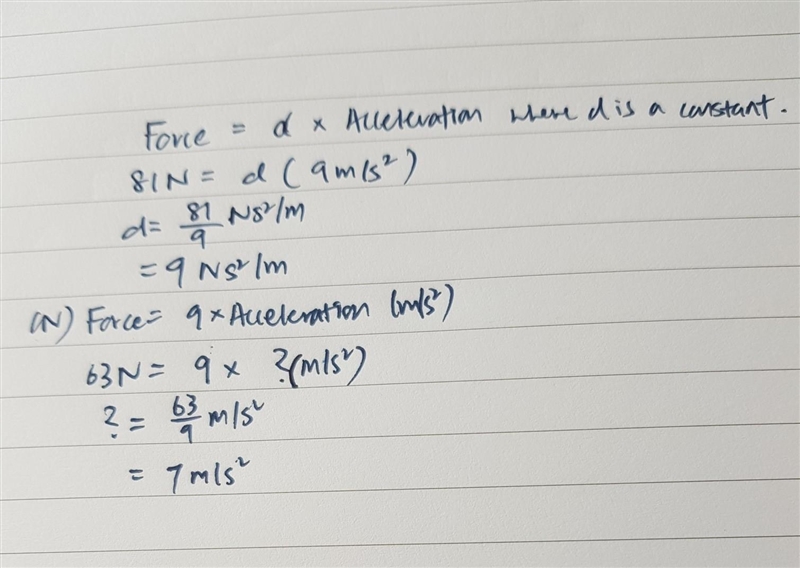 Force = d × Acceleration where d is a constant.
81N = d (9m/s²)
d = 81/9 Ns²/m
= 9 Ns²/m
(N) Force = 9 × Acceleration (m/s²)
63N = 9 × ?(m/s²)
? = 63/9 m/s²
= 7m/s²